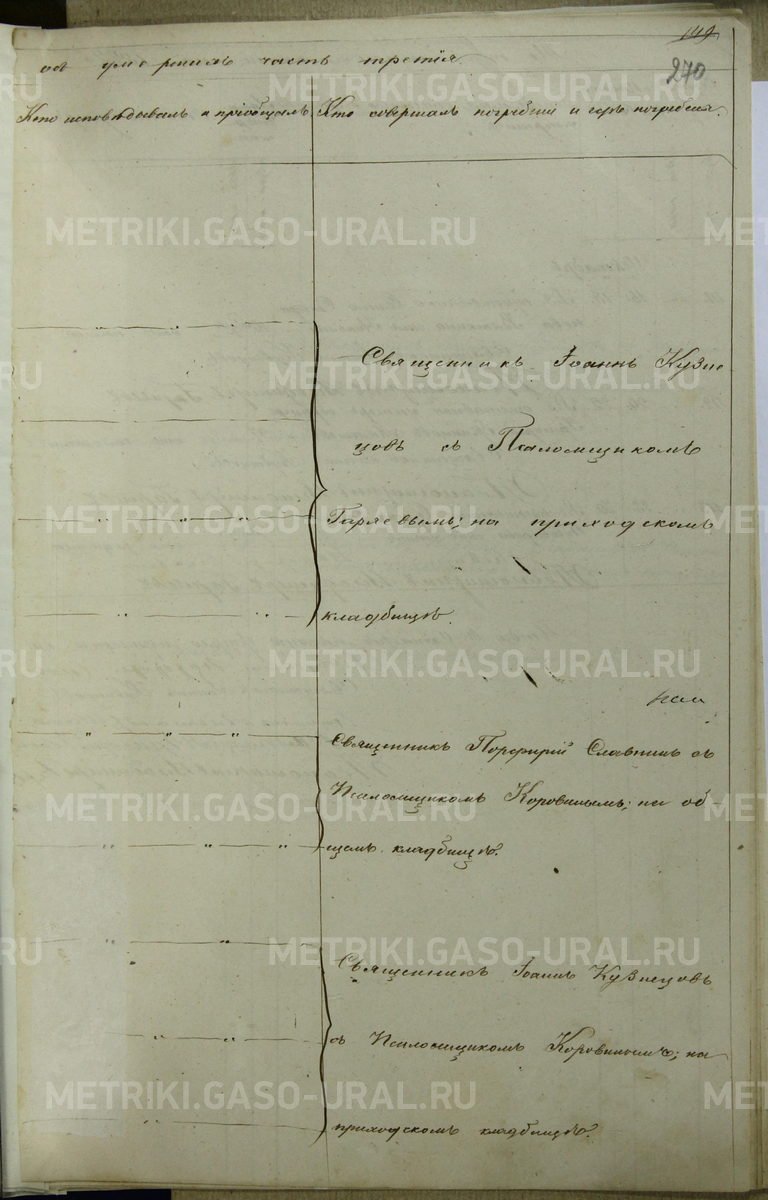 149
270
объ умершихъ часть третія.
Кто исповѣдывалъ и пріобщалъ. Кто совершалъ погребеніе и гдѣ погребены.
Священникъ Іоаннъ Кузне
цовъ съ Псаломщикомъ
Гаряевымъ; на приходскомъ
кладбищѣ.
Священникъ Порфирій Славнинъ съ
Псаломщикомъ Коровинымъ; на об-
щемъ кладбищѣ.
Священникъ Іоаннъ Кузнецовъ
съ Псаломщикомъ Коровинымъ; на
приходскомъ кладбищѣ.
METRIKI.GASO-URAL.RU